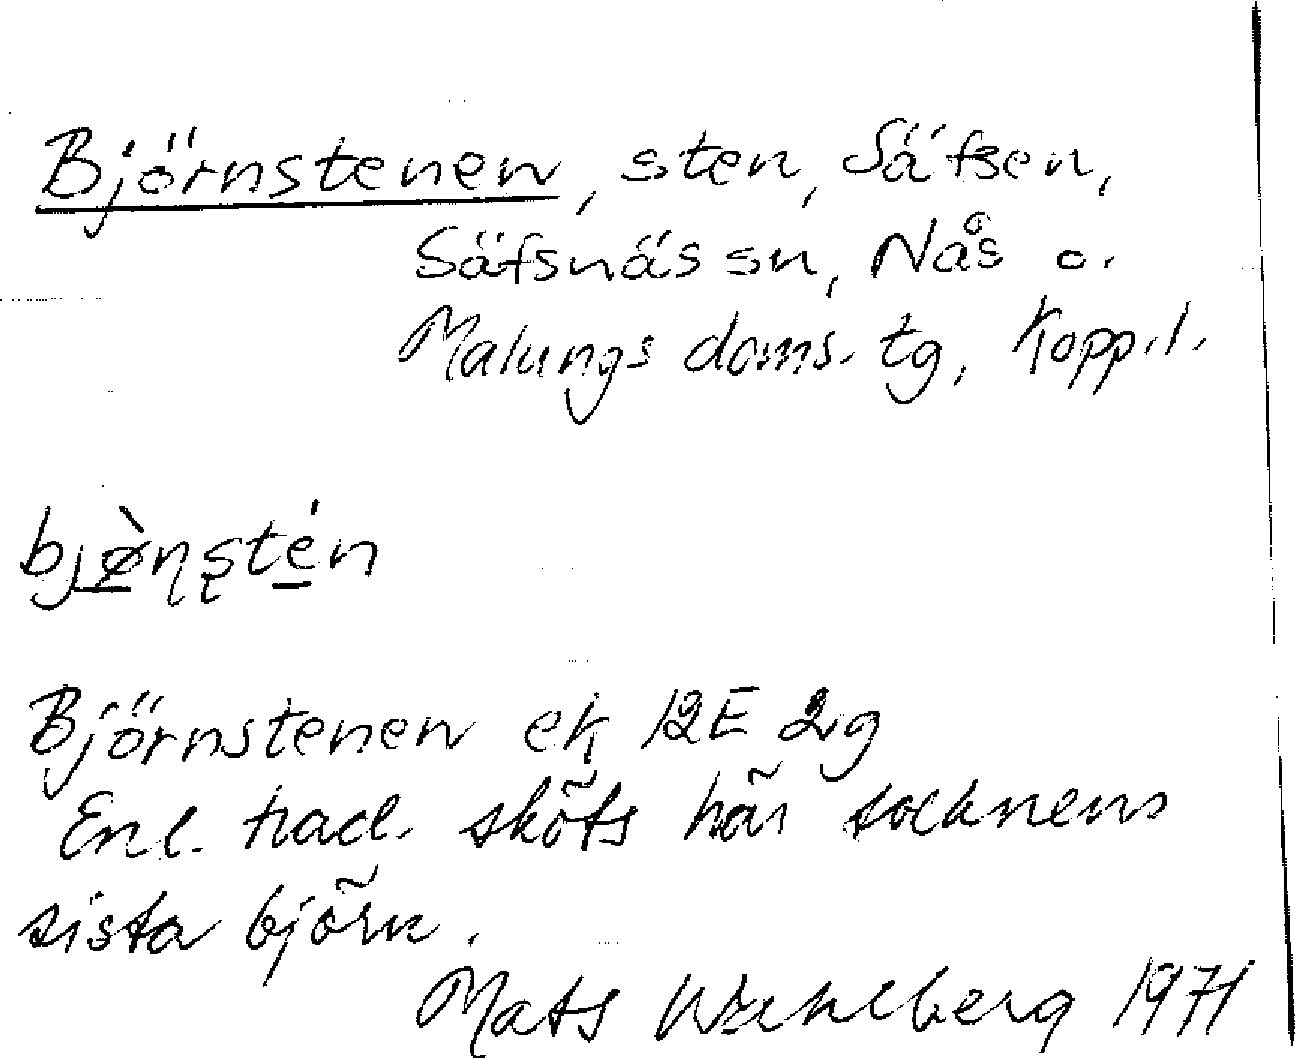 Björnstenen, sten, Säfsen,
Säfsnäs sn, Nås o.
Malungs doms. tg, Kopp.l.
bjø̱̀ɳʂté̱n
Björnstenen ek 12E 2g
Enl. trad. sköts här socknens
sista björn.
Mats Wahlberg 1971